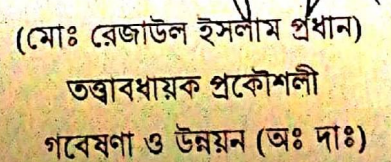 (মোঃ রেজাউল ইসলাম প্রধান)
তত্ত্বাবধায়ক প্রকৌশলী
গবেষণা ও উন্নয়ন (অঃ দাঃ)